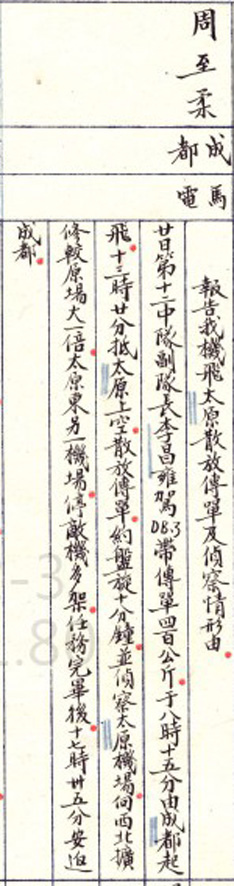 周至柔
成都
馬電
報告我機飛太原散放傳單及偵察情形由
廿日第十二中隊副隊長李昌雍駕DB.3帶傳單四百公斤于八時十五分由成都起
飛十三時廿分抵太原上空散放傳單約盤旋十分鐘並偵察太原機場向西北擴
修較原場大一倍太原東另一機場停敵機多架任務完畢後十七時卅五分安返
成都